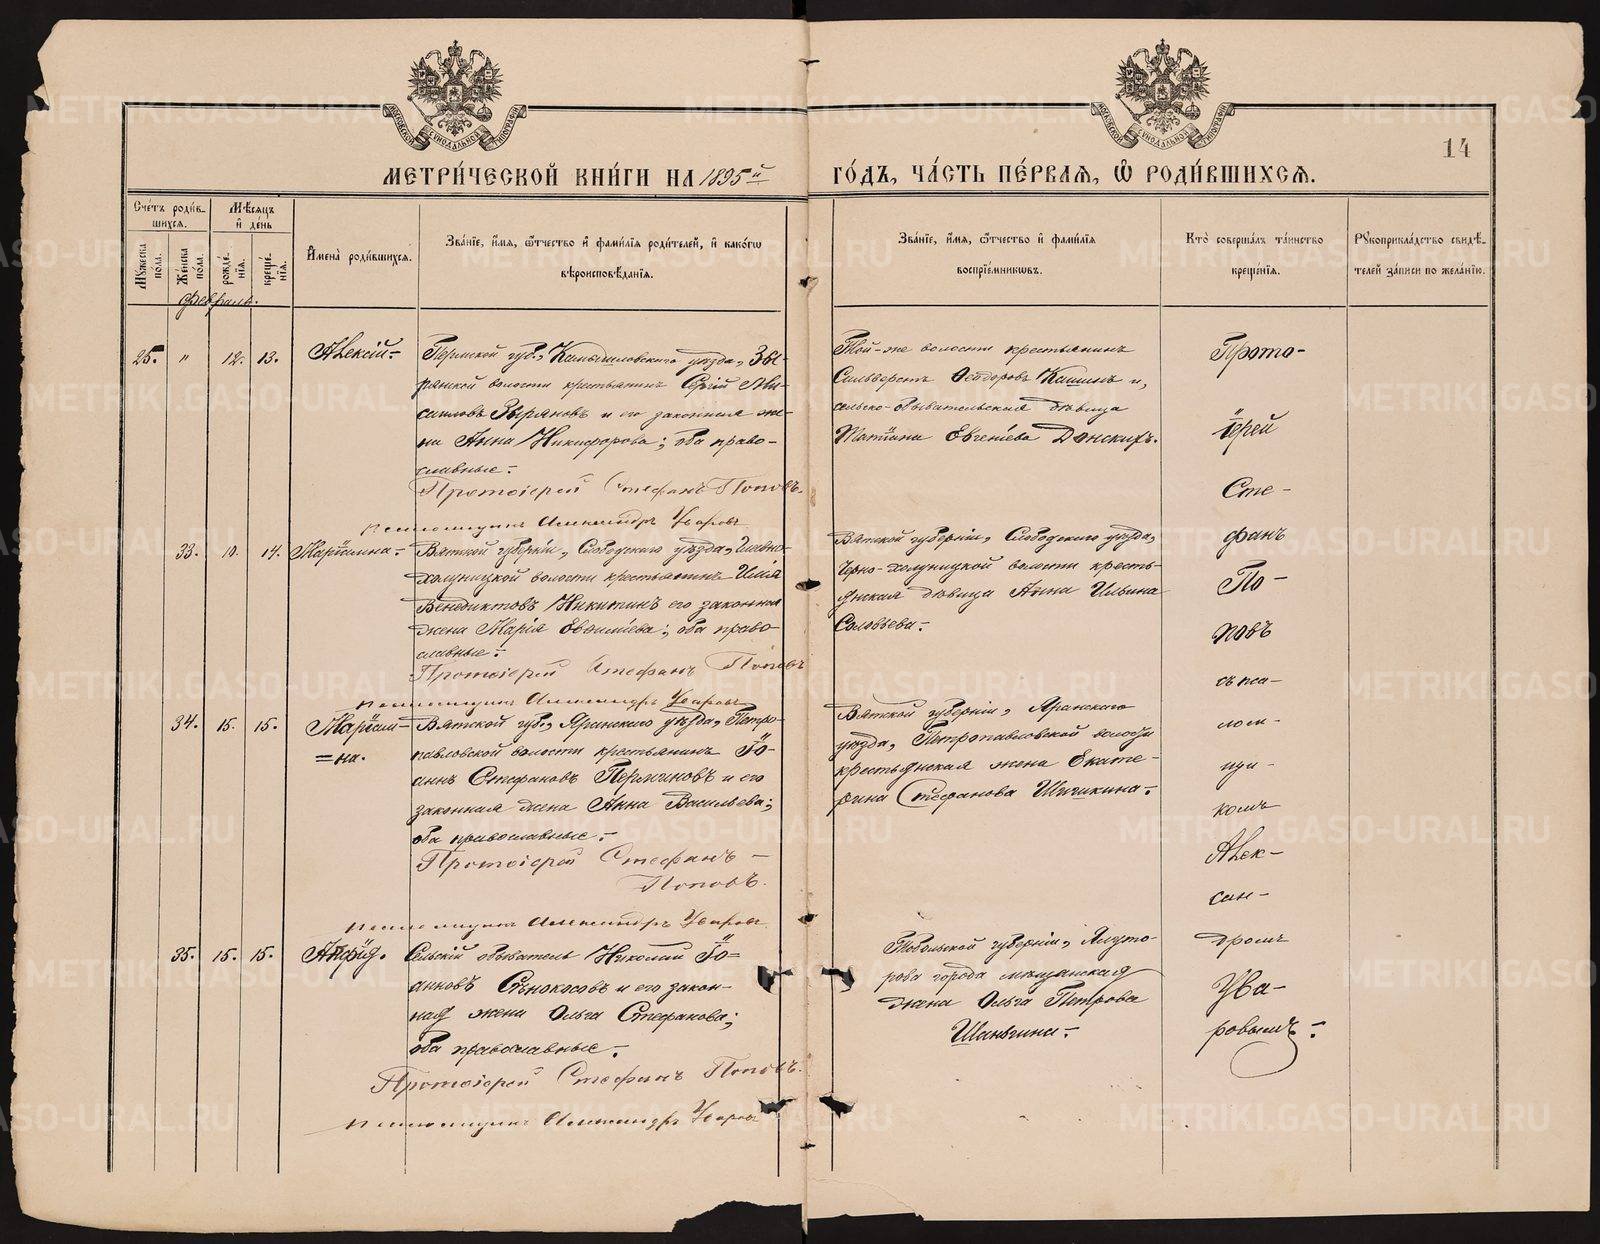 МЕТРИ́ЧЕСКОЙ КНИ́ГИ НА 1895й
ГО́ДЪ, ЧА́СТЬ ПЕ́РВАЯ, Ѡ҆ РОДИ́ВШИХСѦ.
14
Сче́тъ роди́в-
шихся.
Мѣсяцъ
и҆ де́нь
Мꙋжеска
пола.
Же́нска
пола.
рожде́-
нїя.
креще́-
нїя.
И҆мена̀ роди́вшихся.
Зва́нїе, и҆́мя, ѻ҆́тчество и҆ фами́лїя роди́телей, и҆ како́гѡ
вѣроисповѣ́данїя.
Зва́нїе, и҆́мя, ѻ҆́тчество и҆ фами́лїя
воспрїе́мникѡвъ.
Кто̀ соверша́лъ та́инство
креще́нїя.
Рꙋкоприкла́дство свидѣ́-
телей за́писи по жела́нїю.
Февраль.
25. " 12. 13. Алексій-
Пермской губ., Камышловскаго уѣзда, Зы-
рянской волости крестьянинъ Сергій
Зыряновъ и его законная же-
на Анна Никифорова; оба право-
славные.-
Протоіерей Стефанъ Поповъ.
Псаломщикъ Александръ Уваровъ
Той-же волости крестьянинъ
Сильверстъ Ѳеодоровъ Кашинъ и,
сельско-обывательская дѣвица
Татіана Евгеніева Донскихъ.
33. 10. 14. Маріамна.-
Вятской губерніи, Слободского уѣзда,
холуницкой волости крестьянинъ Илія
Венедиктовъ Никитинъ его законная
жена Марія ; оба право-
славные.-
Протоіерей Стефанъ Поповъ
Псаломщикъ Александръ Уваровъ
Вятской губерніи, Слободского уѣзда,
Черно-холуницкой волости кресть-
янская дѣвица Анна Ильина
Соловьева.-
34. 15. 15. Маріам-
=на.
Вятской губ., Яранскаго уѣзда, Петро-
павловской волости крестьянинъ Іо-
аннъ Стефановъ Перминовъ и его
законная жена Анна Васильева;
оба православные.-
Протоіерей Стефанъ -
Поповъ.
Псаломщикъ Александръ Уваровъ
Вятской губерніи, Яранскаго
уѣзда, Петропавловской волости
крестьянская жена Екате-
рина Стефанова Шишкина.-
35. 15. 15. Анфія.
Сельскій обыватель Николай Іо-
анновъ Сѣнокосовъ и его закон-
ная жена Ольга Стефанова;
оба православные.-
Протоіерей Стефанъ Поповъ.
Псаломщикъ Александръ Уваровъ
Тобольской губерніи, Ялуто-
рова города мѣщанская
жена Ольга Петрова
Шаньгина.-
Прото-
іерей
Сте-
фанъ
По-
повъ
съ пса-
лом-
щи-
комъ
Алек-
сан-
дромъ
Ува-
ровымъ.-
METRIKI.GASO-URAL.RU